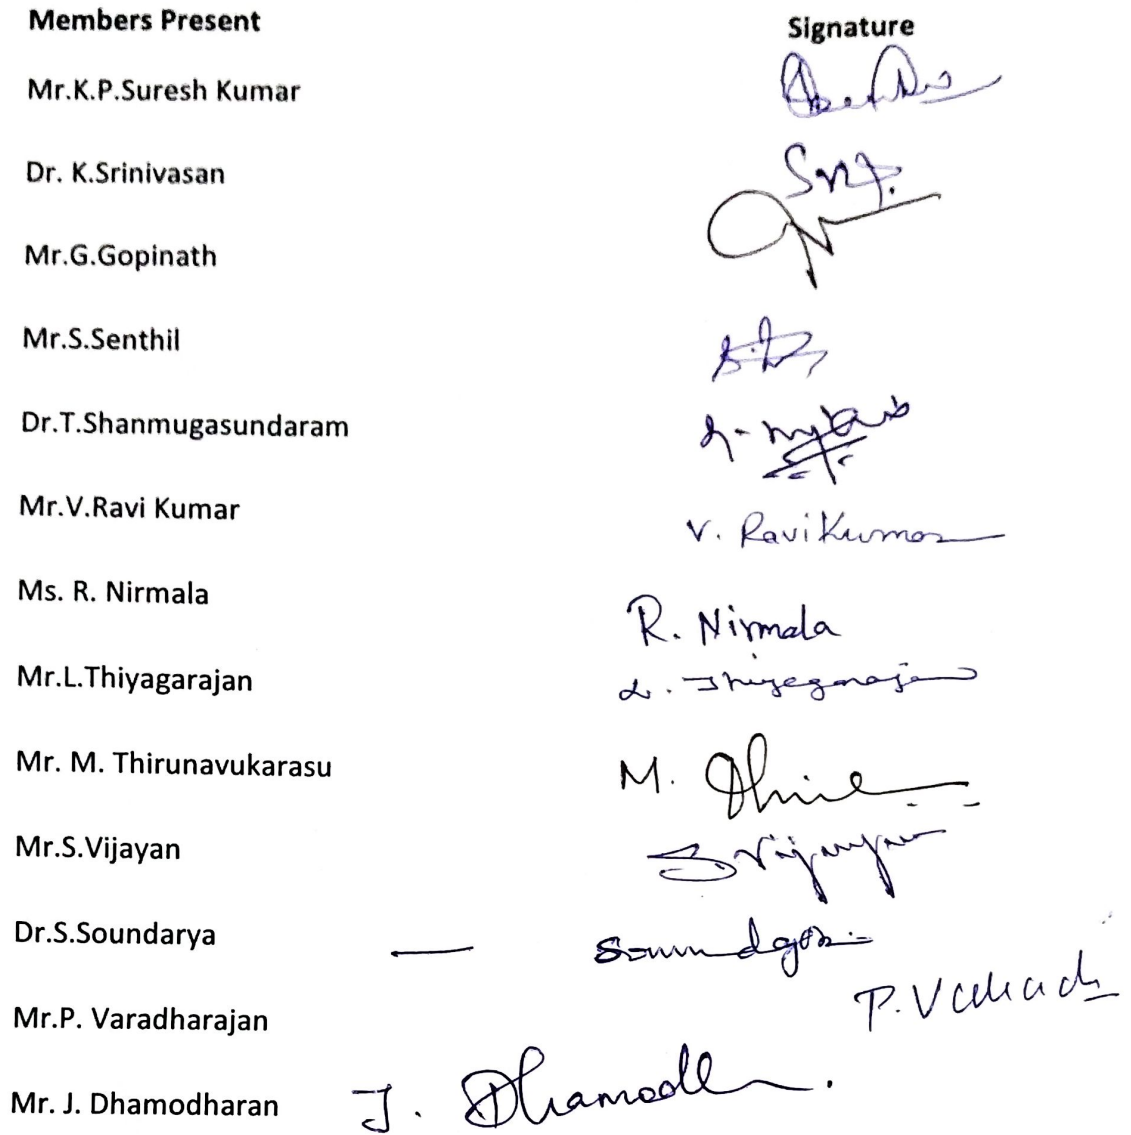 Members Present Signature
Mr.K.P.Suresh Kumar
Dr. K.Srinivasan
Mr.G.Gopinath
Mr.S.Senthil
Dr.T.Shanmugasundaram
Mr.V.Ravi Kumar V. RaviKumar
Ms. R. Nirmala R. Nirmala
Mr.L.Thiyagarajan L. Thiyagarajan
Mr. M. Thirunavukarasu M.
Mr.S.Vijayan S Vijayan
Dr.S.Soundarya —
Mr.P. Varadharajan
Mr. J. Dhamodharan J.